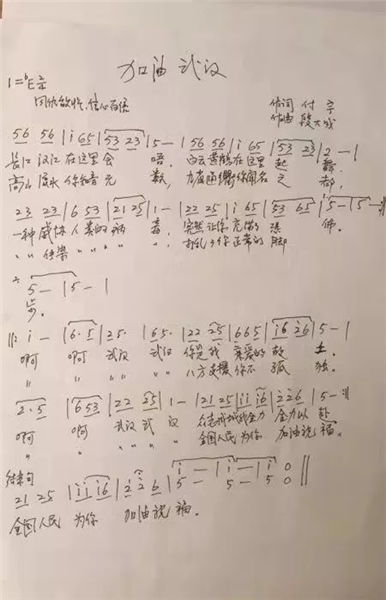 加油 武汉
1=♭E
同仇敌忾,信心百倍
作词 付
作曲 段大成
56 56 | i 65 | 53 23 | 5 — | 56 56 | i 65 | 53 23 | 2 — |
长江 汉江 在这里 会 唔, 白云黄鹤 在这里 起 舞,
高山 流水 你知音 无 数, 你闻名 之 都,
23 23 | 6 53 | 21 25 | 1 — | 22 25 | i 65 | 53 65 | 5 — | 5 — :||
一种 威协 人类的 病 毒, 突然 让你 充满 恐 怖。
〃 〃 传染 〃 〃 〃 〃 打乱 了你 正常的 脚
5 — | 5 — |
步。
||: i — | 6· 5 | 25· | 65· | 22 25 | 665 | i6 26 | 5 — |
啊 啊 武汉 武汉 你是 我 亲爱的 故 土。
〃 〃 〃 〃 八方支援 你不 孤 独。
2·5 | 653 | 22 25 | 1 — | 21 25 | ii i6 | 226 | 5 — :||
啊 啊 武汉 武 汉 众志成城 全力 以 赴
〃 〃 〃 〃 〃 全国人民 为你 加油祝 福。
结束句
21 25 | ii i6 | 2 2 6 | i — | i — | i 0 ||
5 — 5 — 5 0
全国人民 为你 加油祝 福。